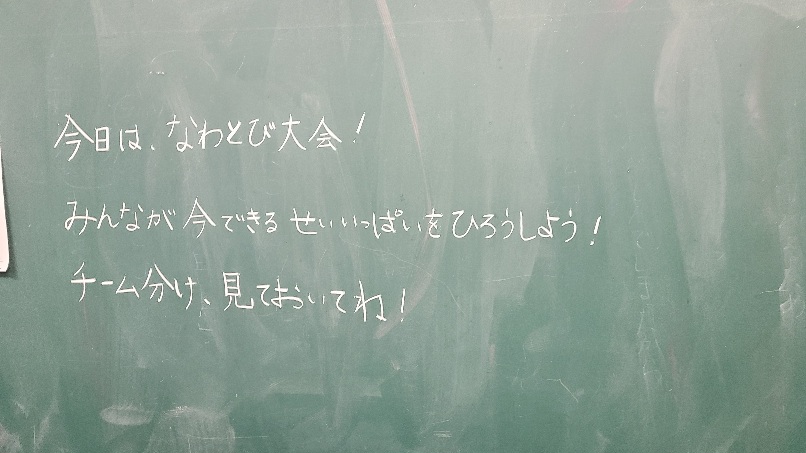 今日は、なわとび大会!
みんなが今できるせいいっぱいをひろうしよう!
チーム分け、見ておいてね!